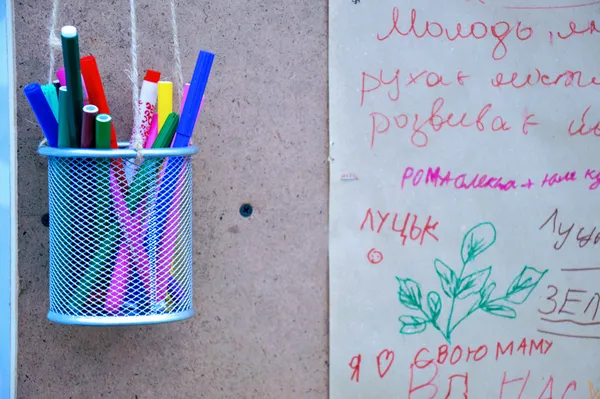 Молодь, як
рухає місто
розвиває й
Ромалекса + юле
ЛУЦЬК
Луц
ЗЕЛ
Я ♡ СВОЮ МАМУ
ВП НАС